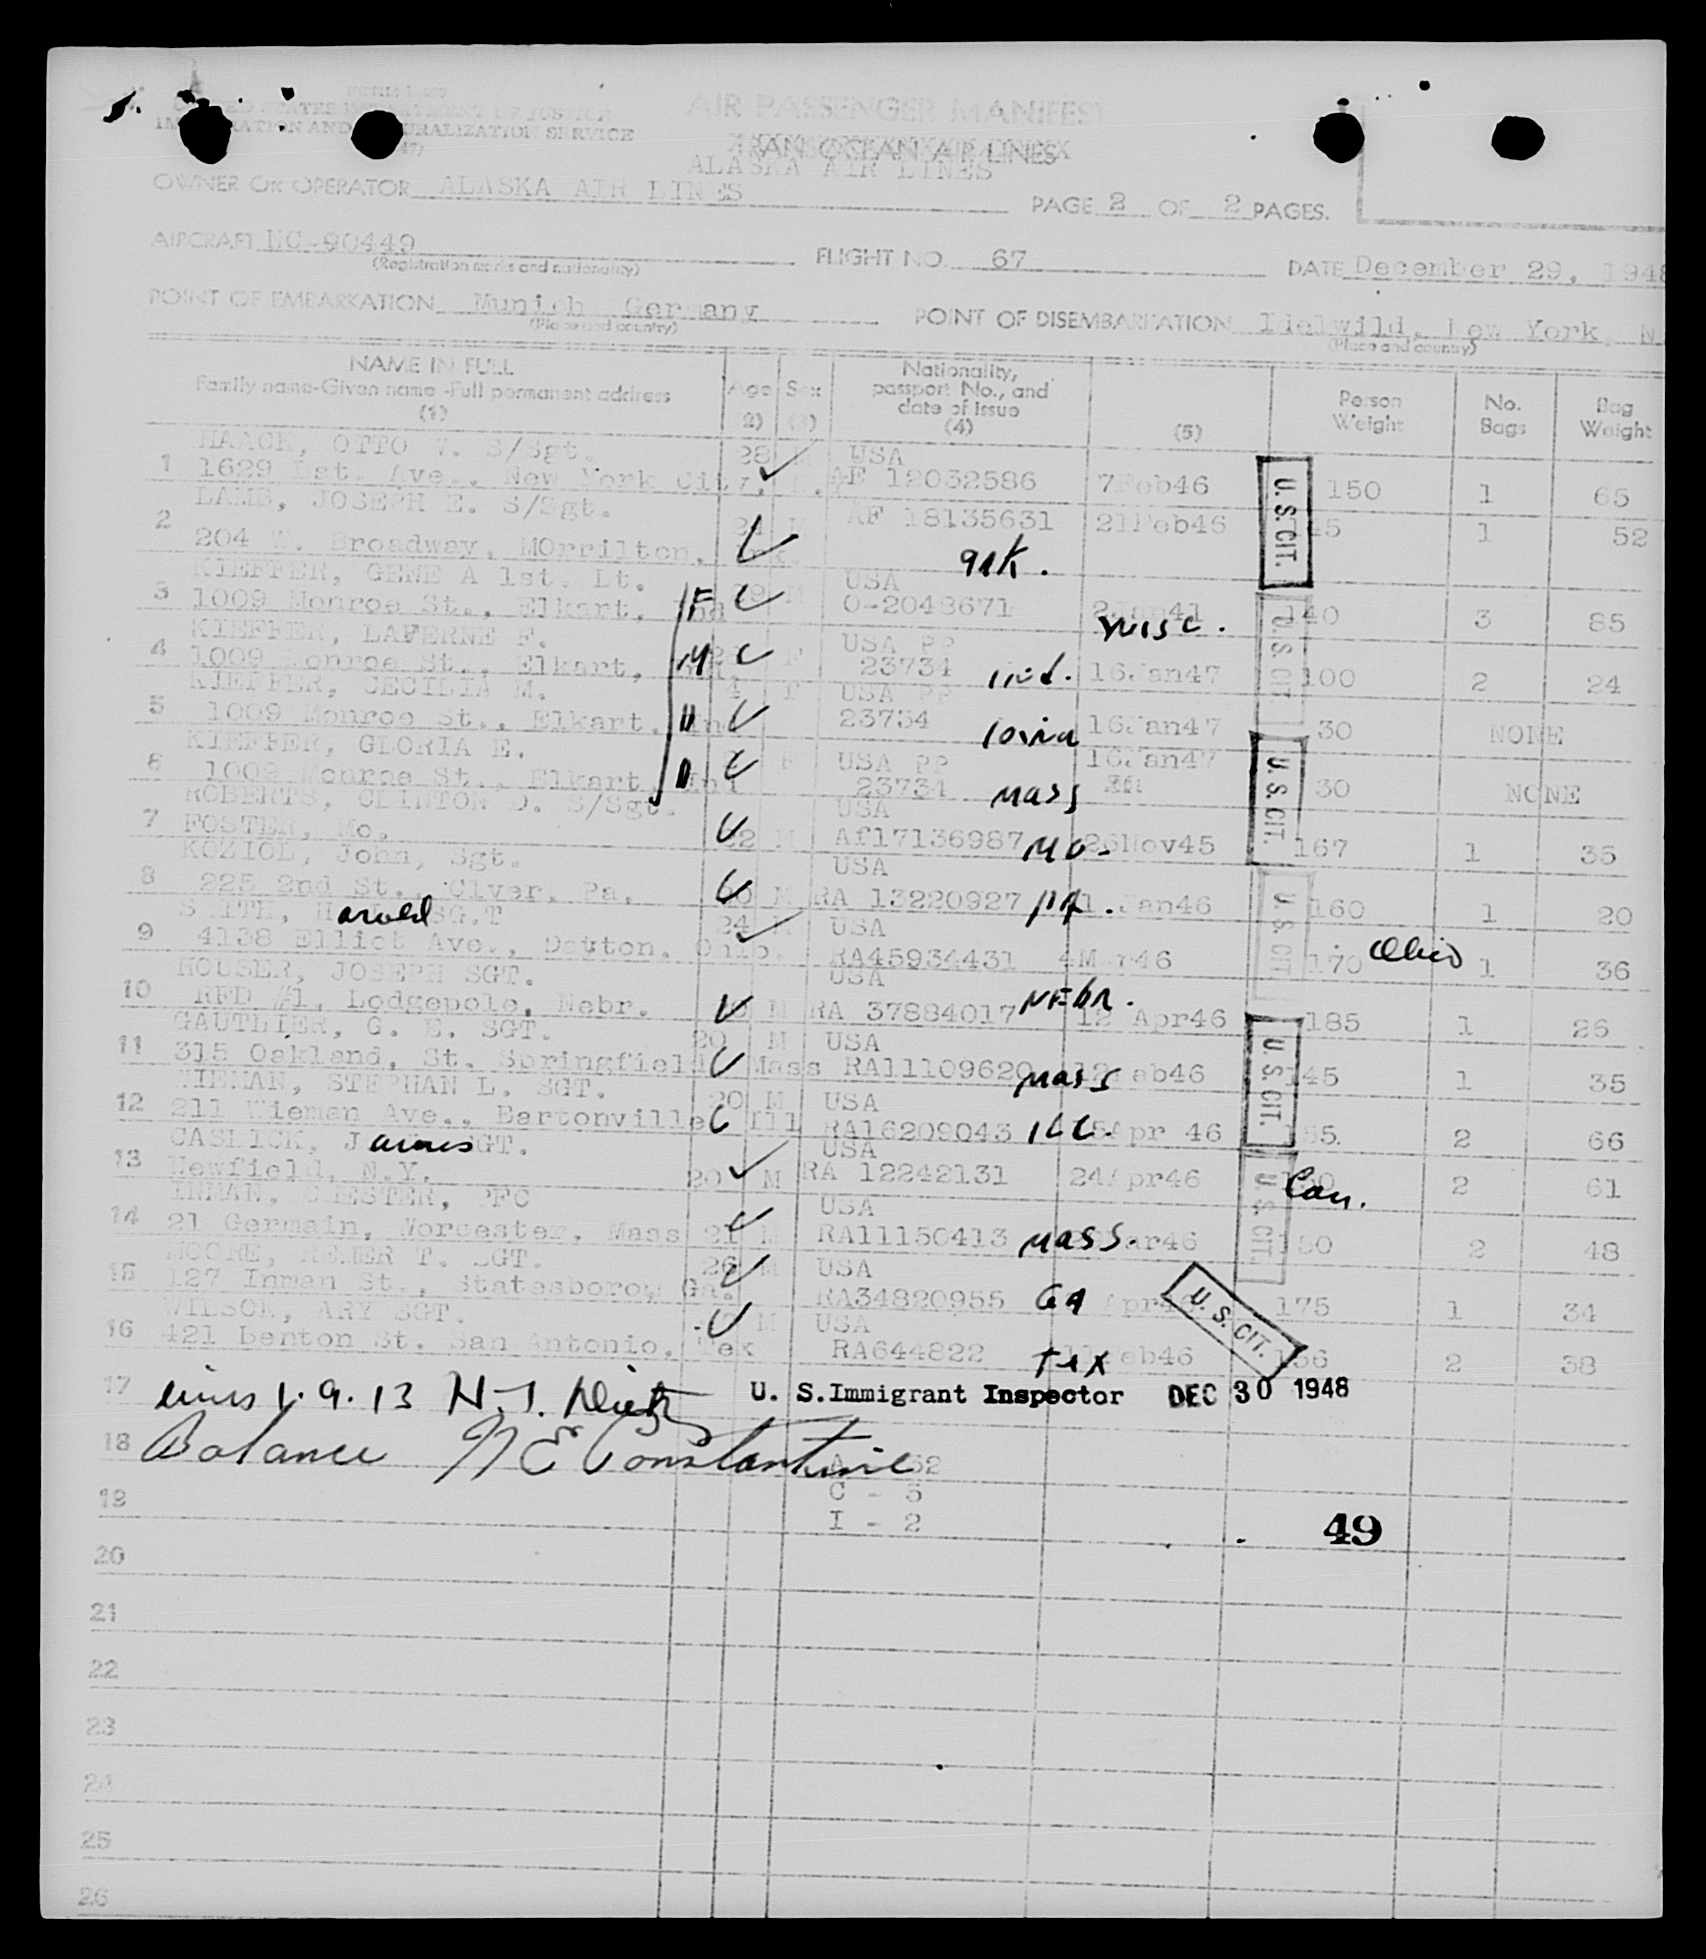 UNITED STATES DEPARTMENT OF JUSTICE
IMMIGRATION AND NATURALIZATION SERVICE
AIR PASSENGER MANIFEST
TRANS OCEAN AIR LINES
ALASKA AIR LINES
OWNER OR OPERATOR ALASKA AIR LINES
PAGE 2 OF 2 PAGES.
AIRCRAFT NC-90449
(Registration marks and nationality)
FLIGHT NO. 67
DATE December 29, 1948
POINT OF EMBARKATION Munich Germany
(Place and country)
POINT OF DISEMBARKATION Idelwild, New York, N.
(Place and country)
NAME IN FULL
Family name-Given name-Full permanent address
(1)
Age
(2)
Sex
(3)
Nationality, passport No., and date of issue
(4)
(5)
Person Weight
No. Bags
Bag Weight
HAACK, OTTO V. S/Sgt. 28 USA
1 1629 1st. Ave., New York City, AF 12032586 7Feb46 150 1 65
LAMB, JOSEPH E. S/Sgt. M AF 18135631 21Feb46 145 1 52
2 204 W. Broadway, MOrrilton, Ark. ark.
KIEFFER, GENE A 1st. Lt. 29 M USA
3 1009 Monroe St., Elkart, Ind F O-2048671 2Jan41 Wisc. 140 3 85
KIEFFER, LAVERNE F. F USA PP
4 1009 Monroe St., Elkart, M 23734 ind. 16Jan47 100 2 24
KIEFFER, CECILIA M. 4 F USA PP
5 1009 Monroe St., Elkart, Ind D 23734 Iowa 16Jan47 30 NONE
KIEFFER, GLORIA E. F USA PP 16Jan47
6 1009 Monroe St., Elkart, Ind D 23734 Mass 30 NONE
ROBERTS, CLINTON D. S/Sgt. USA
7 FOSTER, Mo. 22 M Af17136987 Mo. 26Nov45 167 1 35
KOZIOL, John, Sgt. USA
8 225 2nd St., Clyer, Pa. 20 M RA 13220927 PA. 1 Jan46 160 1 20
SMITH, Harold SGT 24 M USA
9 4138 Elliot Ave., Dayton, Ohio. RA45934431 4Mar46 170 Ohio 1 36
HOUSER, JOSEPH SGT. USA
10 RFD #1, Lodgepole, Nebr. M RA 37884017 NEbr. 12 Apr46 185 1 26
GAUTLIER, G. E. SGT. 20 M USA
11 315 Oakland, St. Springfield Mass RA11109620 Mass 12Feb46 145 1 35
WIEMAN, STEPHAN L. SGT. 20 M USA
12 211 Wieman Ave., Bartonville Ill RA16209043 ILL. 15Apr 46 2 66
CASLICK, James SGT. USA
13 Newfield, N.Y. 20 M RA 12242131 24Apr46 Can. 2 61
INMAN, CHESTER, PFC USA
14 21 Germain, Worcester, Mass 21 M RA11150413 Mass. Mar46 2 48
MOORE, REMER T. SGT. 26 M USA
15 127 Inman St., Statesboro, Ga. RA34820955 GA Apr46 175 1 34
WILSON, ARY SGT. M USA
16 421 Denton St. San Antonio, Tex RA644822 Tex 11Feb46 156 2 38
U. S. CIT.
U. S. CIT.
U. S. CIT.
U. S. CIT.
U. S. CIT.
U. S. CIT.
U. S. CIT.
17 lines 1.9.13 U. S. Immigrant Inspector DEC 30 1948
18 Balance N E Constantine
19 C - 3
I - 2
49
20
21
22
23
24
25
26